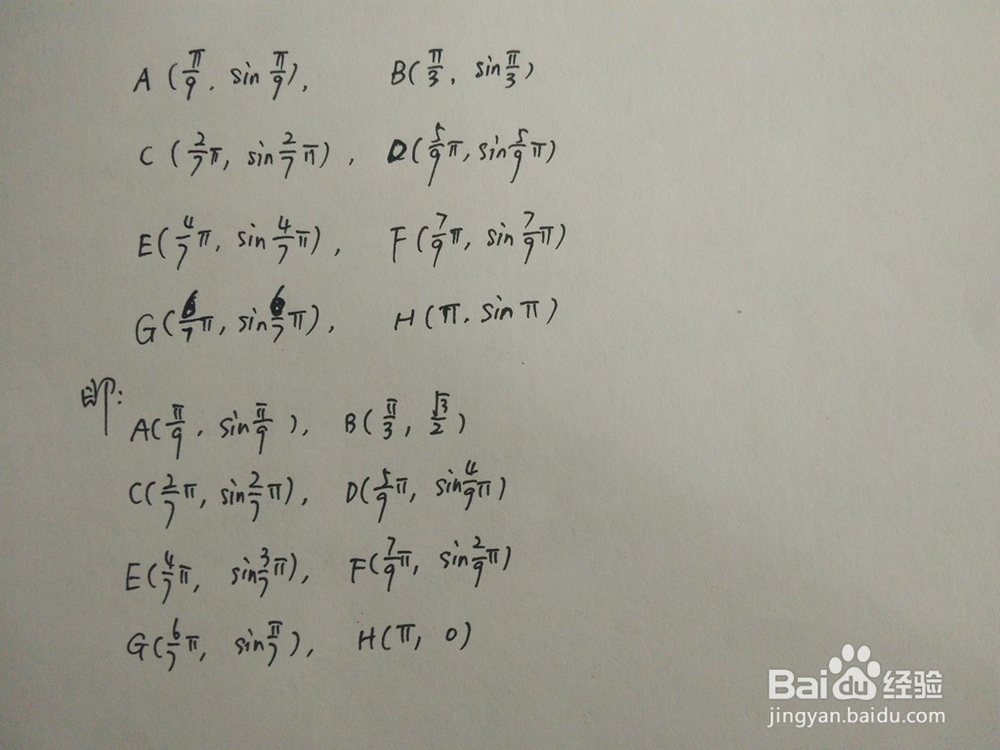 A (π/9, sin π/9), B(π/3, sin π/3)
C (2/7 π, sin 2/7 π), D(5/9 π, sin 5/9 π)
E(4/7 π, sin 4/7 π), F(7/9 π, sin 7/9 π)
G(6/7 π, sin 6/7 π), H(π, sin π)
即:
A(π/9, sin π/9), B(π/3, √3/2)
C(2/7 π, sin 2/7 π), D(5/9 π, sin 4/9 π)
E(4/7 π, sin 3/7 π), F(7/9 π, sin 2/9 π)
G(6/7 π, sin π/7), H(π, 0)
Baidu 经验
jingyan.baidu.com